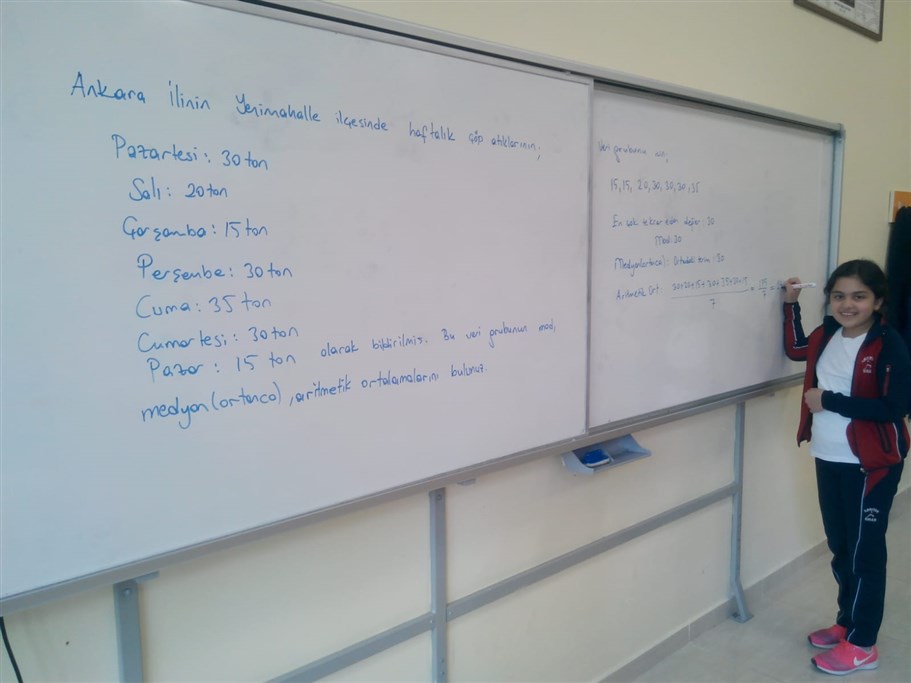 Ankara ilinin Yenimahalle ilçesinde haftalık çöp atıklarının;
Pazartesi: 30 ton
Salı: 20 ton
Çarşamba: 15 ton
Perşembe: 30 ton
Cuma: 35 ton
Cumartesi: 30 ton
Pazar: 15 ton olarak bildirilmiş. Bu veri grubunun mod,
medyan(ortanca), aritmetik ortalamalarını bulunuz.
Veri grubunun
15, 15, 20, 30, 30, 30, 35
En çok tekrar eden değer: 30
Mod: 30
Medyan(ortanca): Ortadaki terim: 30
Aritmetik Ort:
7